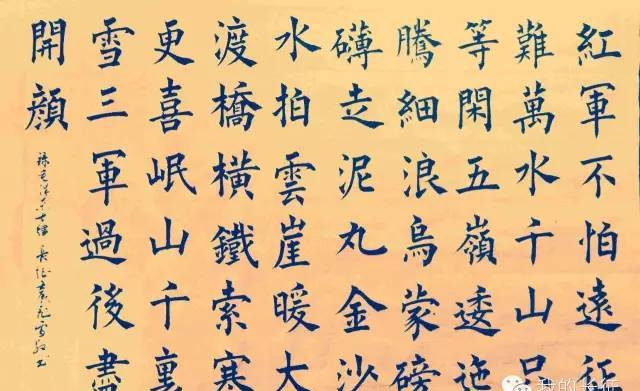 紅軍不怕遠征
難萬水千山只
等閑五嶺逶迤
騰細浪烏蒙磅
礴走泥丸金沙
水拍雲崖暖大
渡橋橫鐵索寒
更喜岷山千裏
雪三軍過後盡
開顏
我的长征